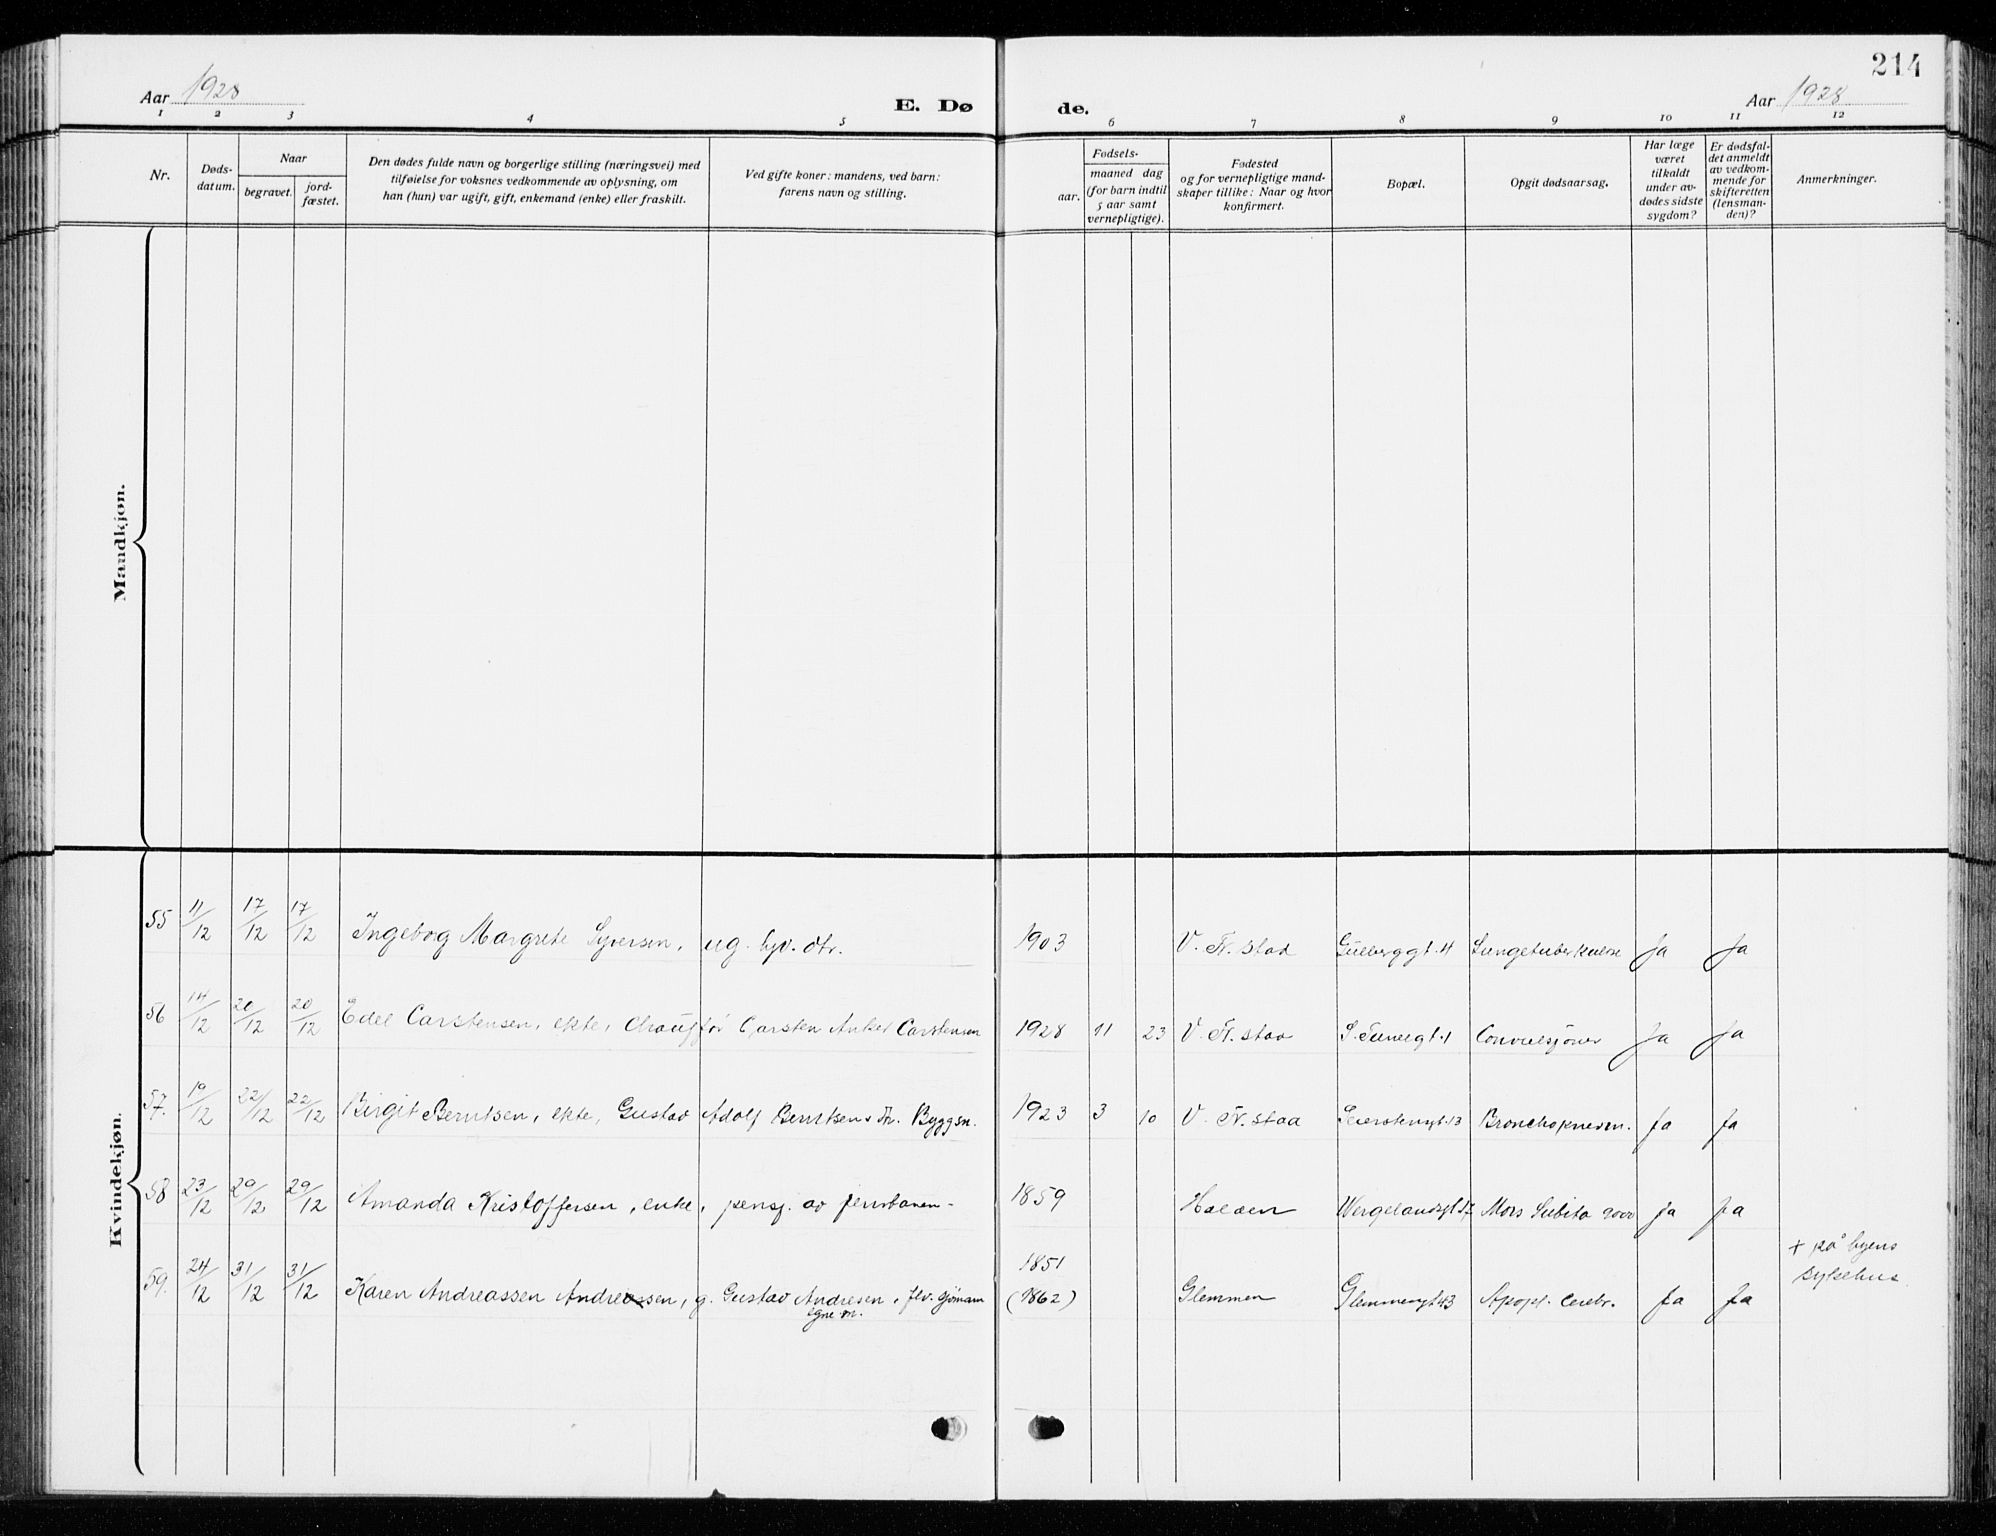 214
Aar 1928
E. Dø
de.
Aar 1928
1 2 3 4 5 6 7 8 9 10 11 12
Nr.
Døds-
datum.
Naar
begravet.
jord-
fæstet.
Den dødes fulde navn og borgerlige stilling (næringsvei) med
tilføielse for voksnes vedkommende av oplysning, om
han (hun) var ugift, gift, enkemand (enke) eller fraskilt.
Ved gifte koner: mandens, ved barn:
farens navn og stilling.
Fødsels-
aar.
maaned dag
(for barn indtil
5 aar samt
vernepligtige).
Fødested
og for vernepligtige mand-
skaper tillike: Naar og hvor
konfirmert.
Bopæl.
Opgit dødsaarsag.
Har læge
været
tilkaldt
under av-
dødes sidste
sygdom?
Er dødsfal-
det anmeldt
av vedkom-
mende for
skifteretten
(lensman-
den)?
Anmerkninger.
Mandkjøn.
Kvindekjøn.
55 11/12 17/12 17/12 Ingeborg Margrete Syversen, ug. hjv. dtr. 1903 V. Fr. stad Gulberggt. 4 Lungetuberkulose Ja Ja
56 14/12 20/12 20/12 Edel Carstensen, ekte, Chauffør Carsten Anker Carstensen 1928 11 23 V. Fr. stad S. 1 Convulsjoner Ja Ja
57. 19/12 22/12 22/12 Birgit Berntsen, ekte, Gustav Adolf Berntsen Byggsn. 1923 3 10 V. Fr. stad 13 Bronchopneum. Ja Ja
58 23/12 29/12 29/12 Amanda Kristoffersen, enke, pensj. av jernbanen - 1859 Halden Wergelandsgt 17 Mors Subita Ja Ja
59. 24/12 31/12 31/12 Karen Andreassen Andreassen, g. Gustav Andresen, flv. sjömann 1851 (1862) Glemmen Glemmengt 43 Apopl. Cerebr. Ja Ja
+ på byens
sykehus.